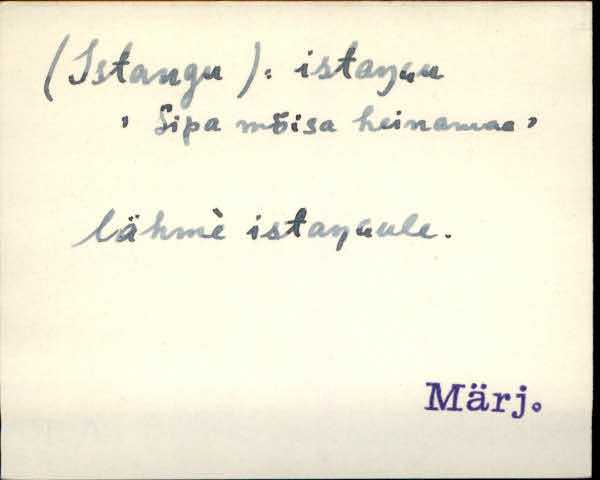 (Istangu): istaŋɢu
' Sipa mõisa heinamaa '
lähmè istaŋɢule.
Märj.